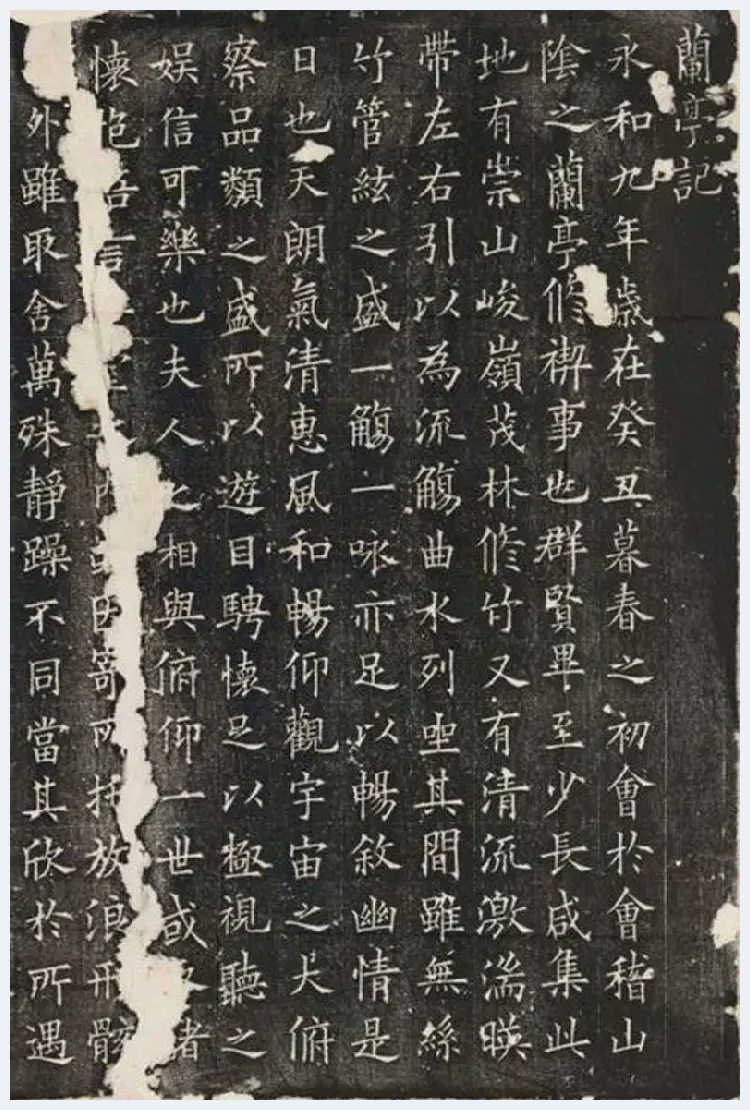 蘭亭記
永和九年歲在癸丑暮春之初會於會稽山
陰之蘭亭修禊事也群賢畢至少長咸集此
地有崇山峻嶺茂林修竹又有清流激湍暎
帶左右引以為流觴曲水列坐其間雖無絲
竹管絃之盛一觴一咏亦足以暢敘幽情是
日也天朗氣清惠風和暢仰觀宇宙之大俯
察品類之盛所以遊目騁懷足以極視聽之
娛信可樂也夫人之相與俯仰一世或諸
懷抱言因寄所托放浪形骸
外雖取舍萬殊靜躁不同當其欣於所遇